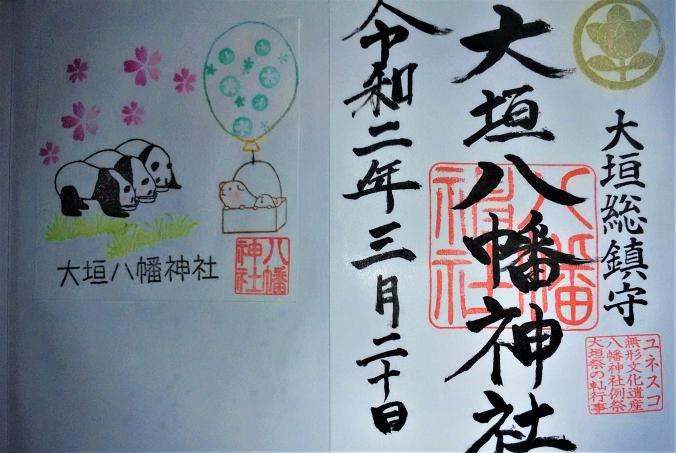 大垣八幡神社
八幡
神社
大垣総鎮守
大垣八幡神社
八幡
神社
令和二年三月二十日
ユネスコ
無形文化遺産
八幡神社例祭
大垣祭の軕行事